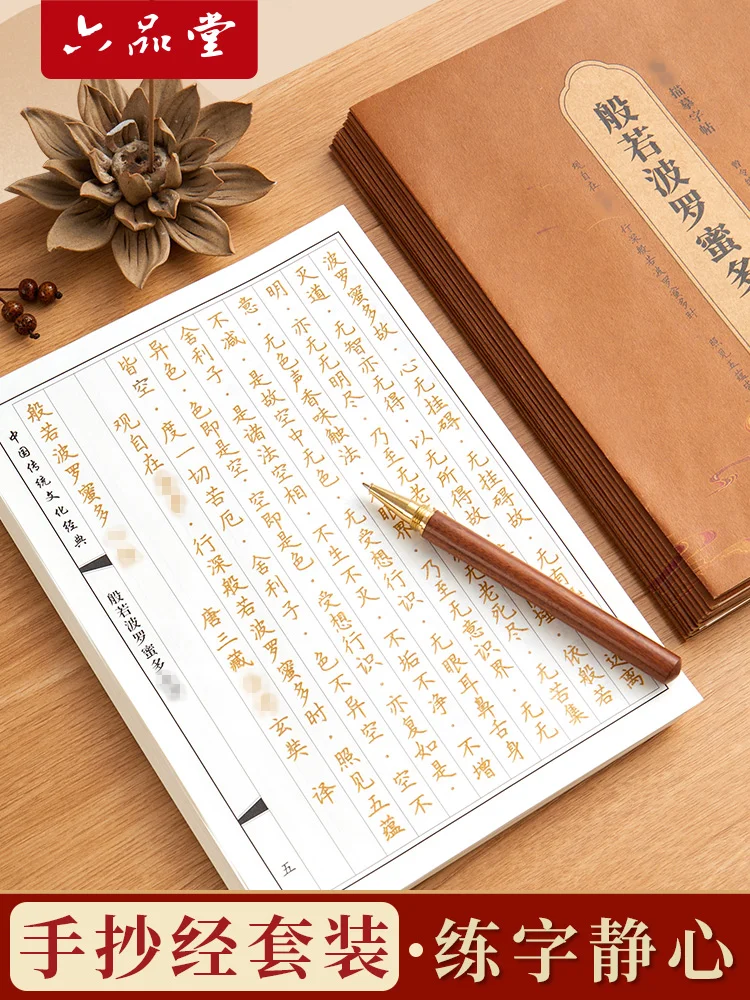 六品堂
描摹字帖
般若波罗蜜多
观自在
行深般若波罗蜜多时
照见五蕴
般若波罗蜜多
唐三藏 玄奘 译
观自在 ·行深般若波罗蜜多时·照见五蕴
皆空·度一切苦厄·舍利子·色不异空·空不
异色·色即是空·空即是色·受想行识·亦复如是·
舍利子·是诸法空相·不生不灭·不垢不净·不增
不减·是故空中无色·无受想行识·无眼耳鼻舌身
意·无色声香味触法·眼界·乃至无意识界·无无
明·亦无无明尽·乃至无老 无老死尽·无苦集
灭道·无智亦无得·以无所得故 埵·依般若
波罗蜜多故·心无挂碍·无挂碍故·无有 远离
中国传统文化经典
般若波罗蜜多
五
手抄经套装·练字静心